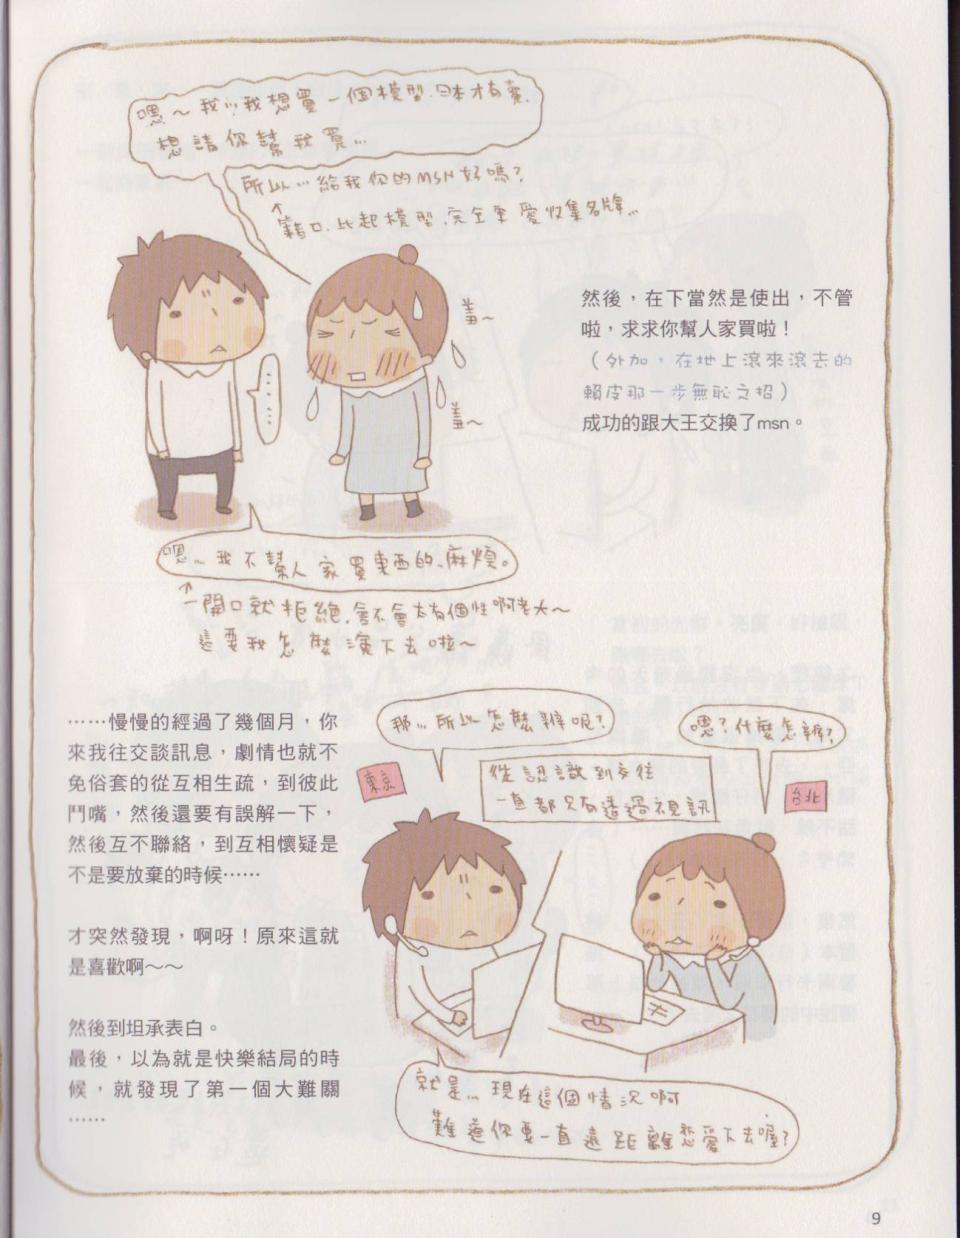 嗯～我…我想買一個模型.日本才有賣.
想請你幫我買…
所以…給我你的MSN好嗎?
藉口.比起模型.完全更愛收集名牌…
羞～
羞～
然後，在下當然是使出，不管
啦，求求你幫人家買啦！
（外加，在地上滾來滾去的
賴皮那一步無恥之招）
成功的跟大王交換了msn。
嗯…我不幫人家買東西的.麻煩。
一開口就拒絕.會不會太有個性啊老大～
這要我怎麼演下去啦～
……慢慢的經過了幾個月，你
來我往交談訊息，劇情也就不
免俗套的從互相生疏，到彼此
鬥嘴，然後還要有誤解一下，
然後互不聯絡，到互相懷疑是
不是要放棄的時候……
才突然發現，啊呀！原來這就
是喜歡啊～～
然後到坦承表白。
最後，以為就是快樂結局的時
候，就發現了第一個大難關
……
那…所以怎麼辦呢?
嗯?什麼怎辦?
東京
從認識到交往
一直都只有透過視訊
台北
就是…現在這個情況啊
難道你要一直遠距離戀愛下去喔?
9